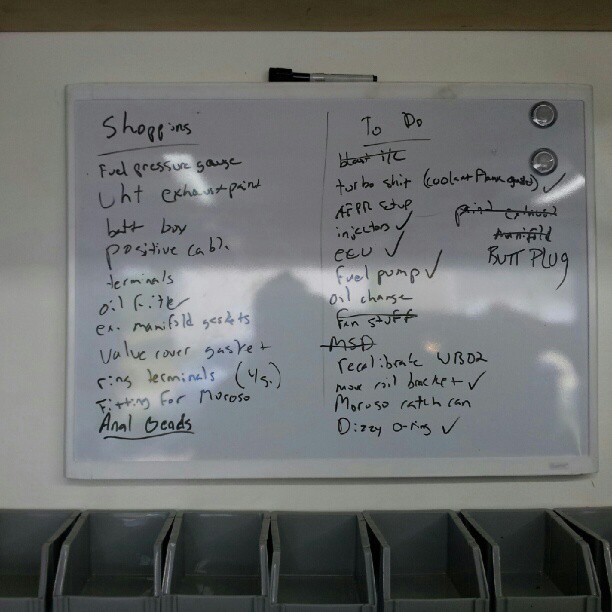 Shopping
Fuel pressure gauge
Uht exhaust paint
batt box
positive cable
terminals
oil filter
ex. manifold gaskets
Value cover gasket
ring terminals (4g.)
Fitting For Moroso
Anal Beads
To Do
turbo shit (coolant Phenr gasket) ✓
AFPR setup
injectors ✓
ECU ✓
Fuel pump ✓
Oil change
Fan stuff
MSD
recalibrate WBO2
move coil bracket ✓
Moroso catch can
Dizzy O-ring ✓
paint exhaust
manifold
BUTT PLUG